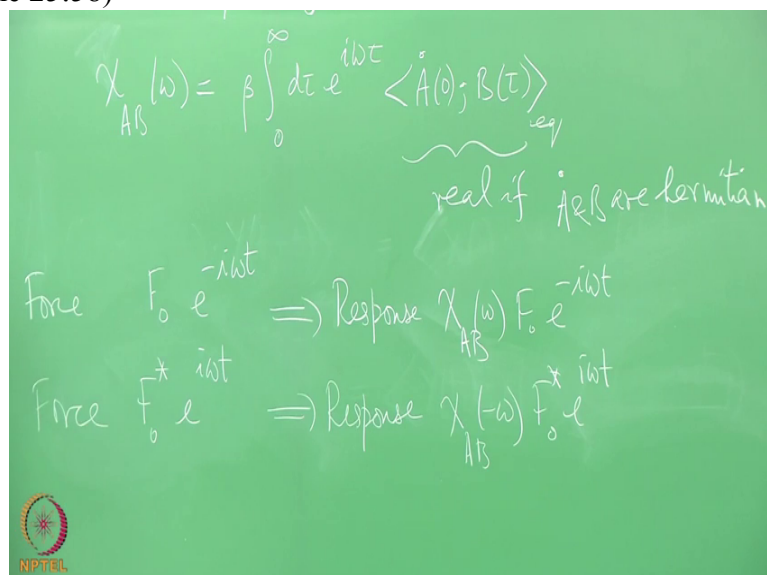 χ_AB(ω) = β ∫_0^∞ dτ e^{iωτ} <Ȧ(0); B(τ)>_eq
real if Ȧ & B are hermitian
Force F_0 e^{-iωt} ⟹ Response χ_AB(ω) F_0 e^{-iωt}
Force F_0^* e^{iωt} ⟹ Response χ_AB(-ω) F_0^* e^{iωt}
NPTEL